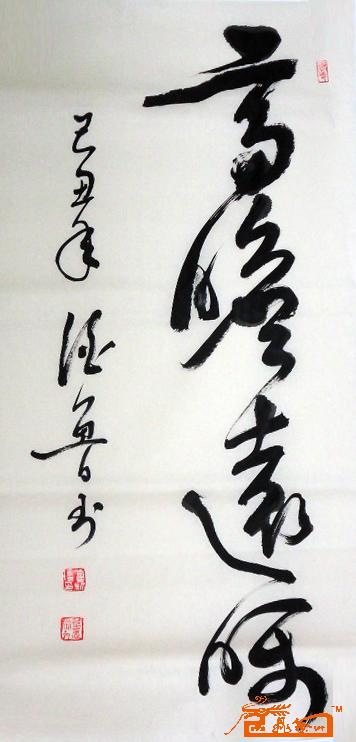 高瞻遠瞩
己丑年 德鲁书